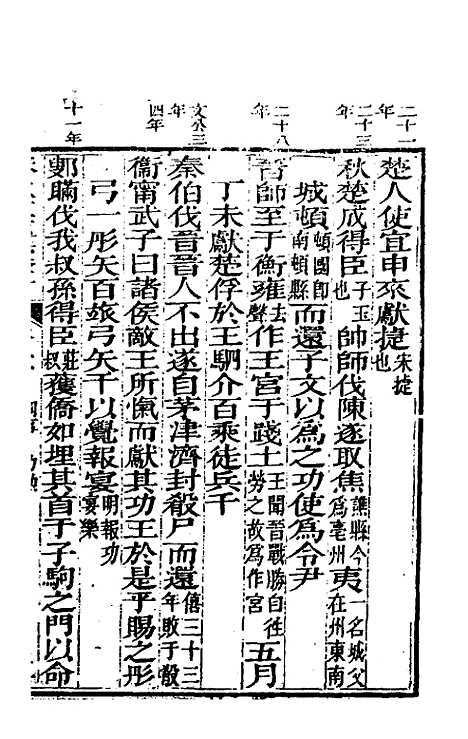 二十一年
楚人使宜申來獻捷宋捷也
二十三年
秋楚成得臣子玉也帥師伐陳遂取焦譙縣今為亳州夷一名城父在州東南
城頓頓國即南頓縣而還子文以為之功使為令尹
二十八年
晉師至于衡雍去聲作王宮于踐土王聞晉戰勝自往勞之故為作宮五月
丁未獻楚俘於王駟介百乘徒兵千
文公三年
秦伯伐晉晉人不出遂自茅津濟封殽尸而還僖三十三年敗于殽
四年
衞甯武子曰諸侯敵王所愾而獻其功王於是乎賜之彤
弓一彤矢百玈弓矢千以覺報宴明報功宴樂
十一年
鄋瞞伐我叔孫得臣莊叔獲僑如埋其首于子駒之門以命